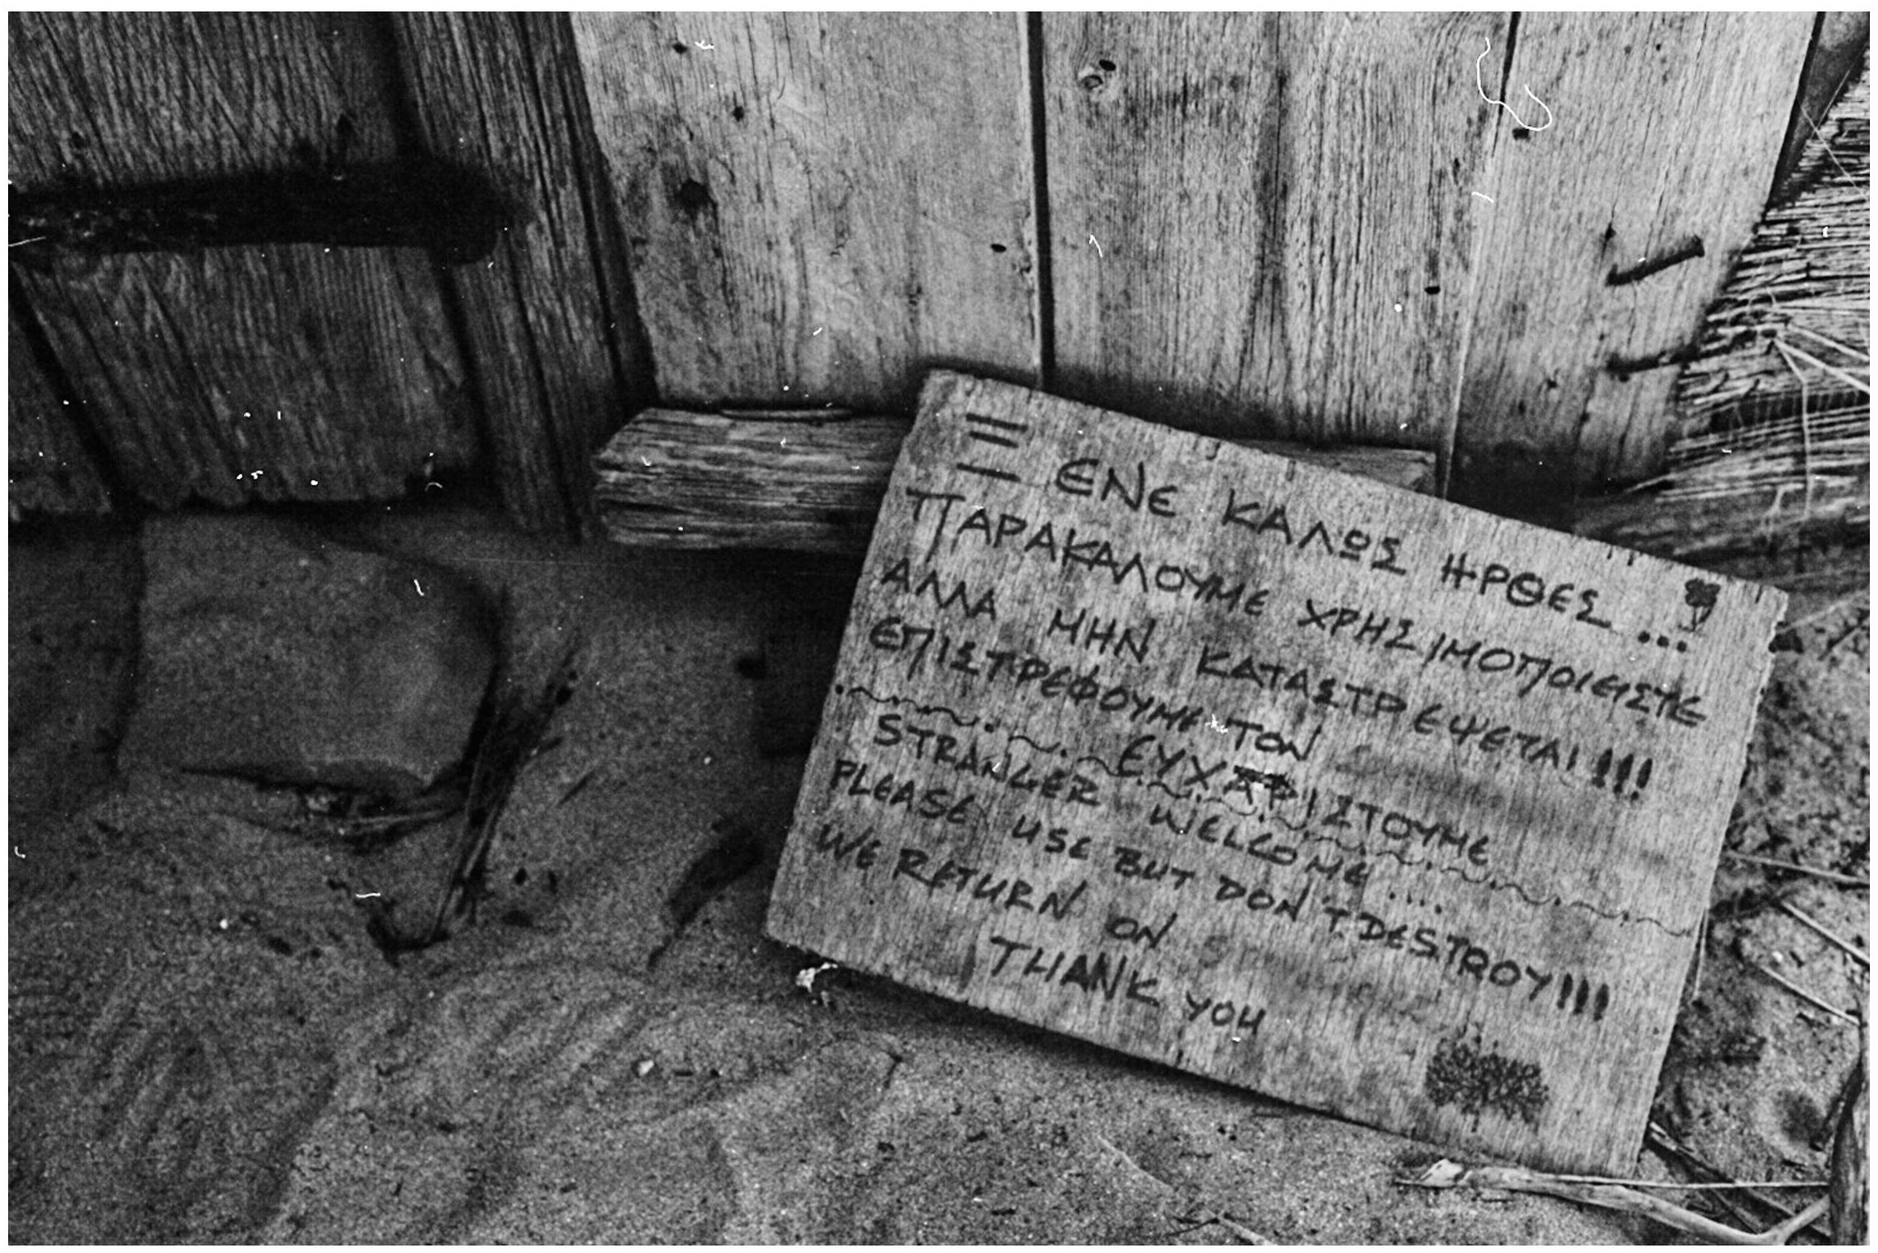 ΞΕΝΕ ΚΑΛΩΣ ΗΡΘΕΣ...
ΠΑΡΑΚΑΛΟΥΜΕ ΧΡΗΣΙΜΟΠΟΙΕΙΣΤΕ
ΑΛΛΑ ΜΗΝ ΚΑΤΑΣΤΡΕΨΕΤΑΙ!!!
ΕΠΙΣΤΡΕΦΟΥΜΕ ΤΟΝ
ΕΥΧΑΡΙΣΤΟΥΜΕ
STRANGER WELCOME....
PLEASE USE BUT DON'T DESTROY!!!
WE RETURN ON
THANK YOU